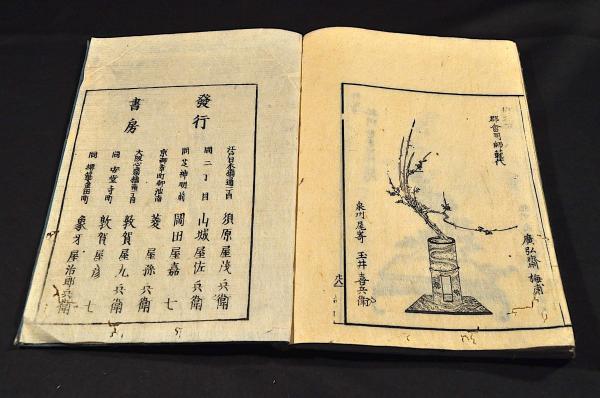 廣弘齋 梅甫
郡會司師
泉州尾嵜 玉井喜兵衛
發行
書房
江戸日本橋通一丁目 須原屋茂兵衛
同二丁目 山城屋佐兵衛
同芝神明前 岡田屋嘉七
京御幸町御池南 菱屋孫兵衛
大阪心斎橋南一丁目 敦賀屋九兵衛
同安堂寺町 敦賀屋彦七
象牙屋治郎兵衛